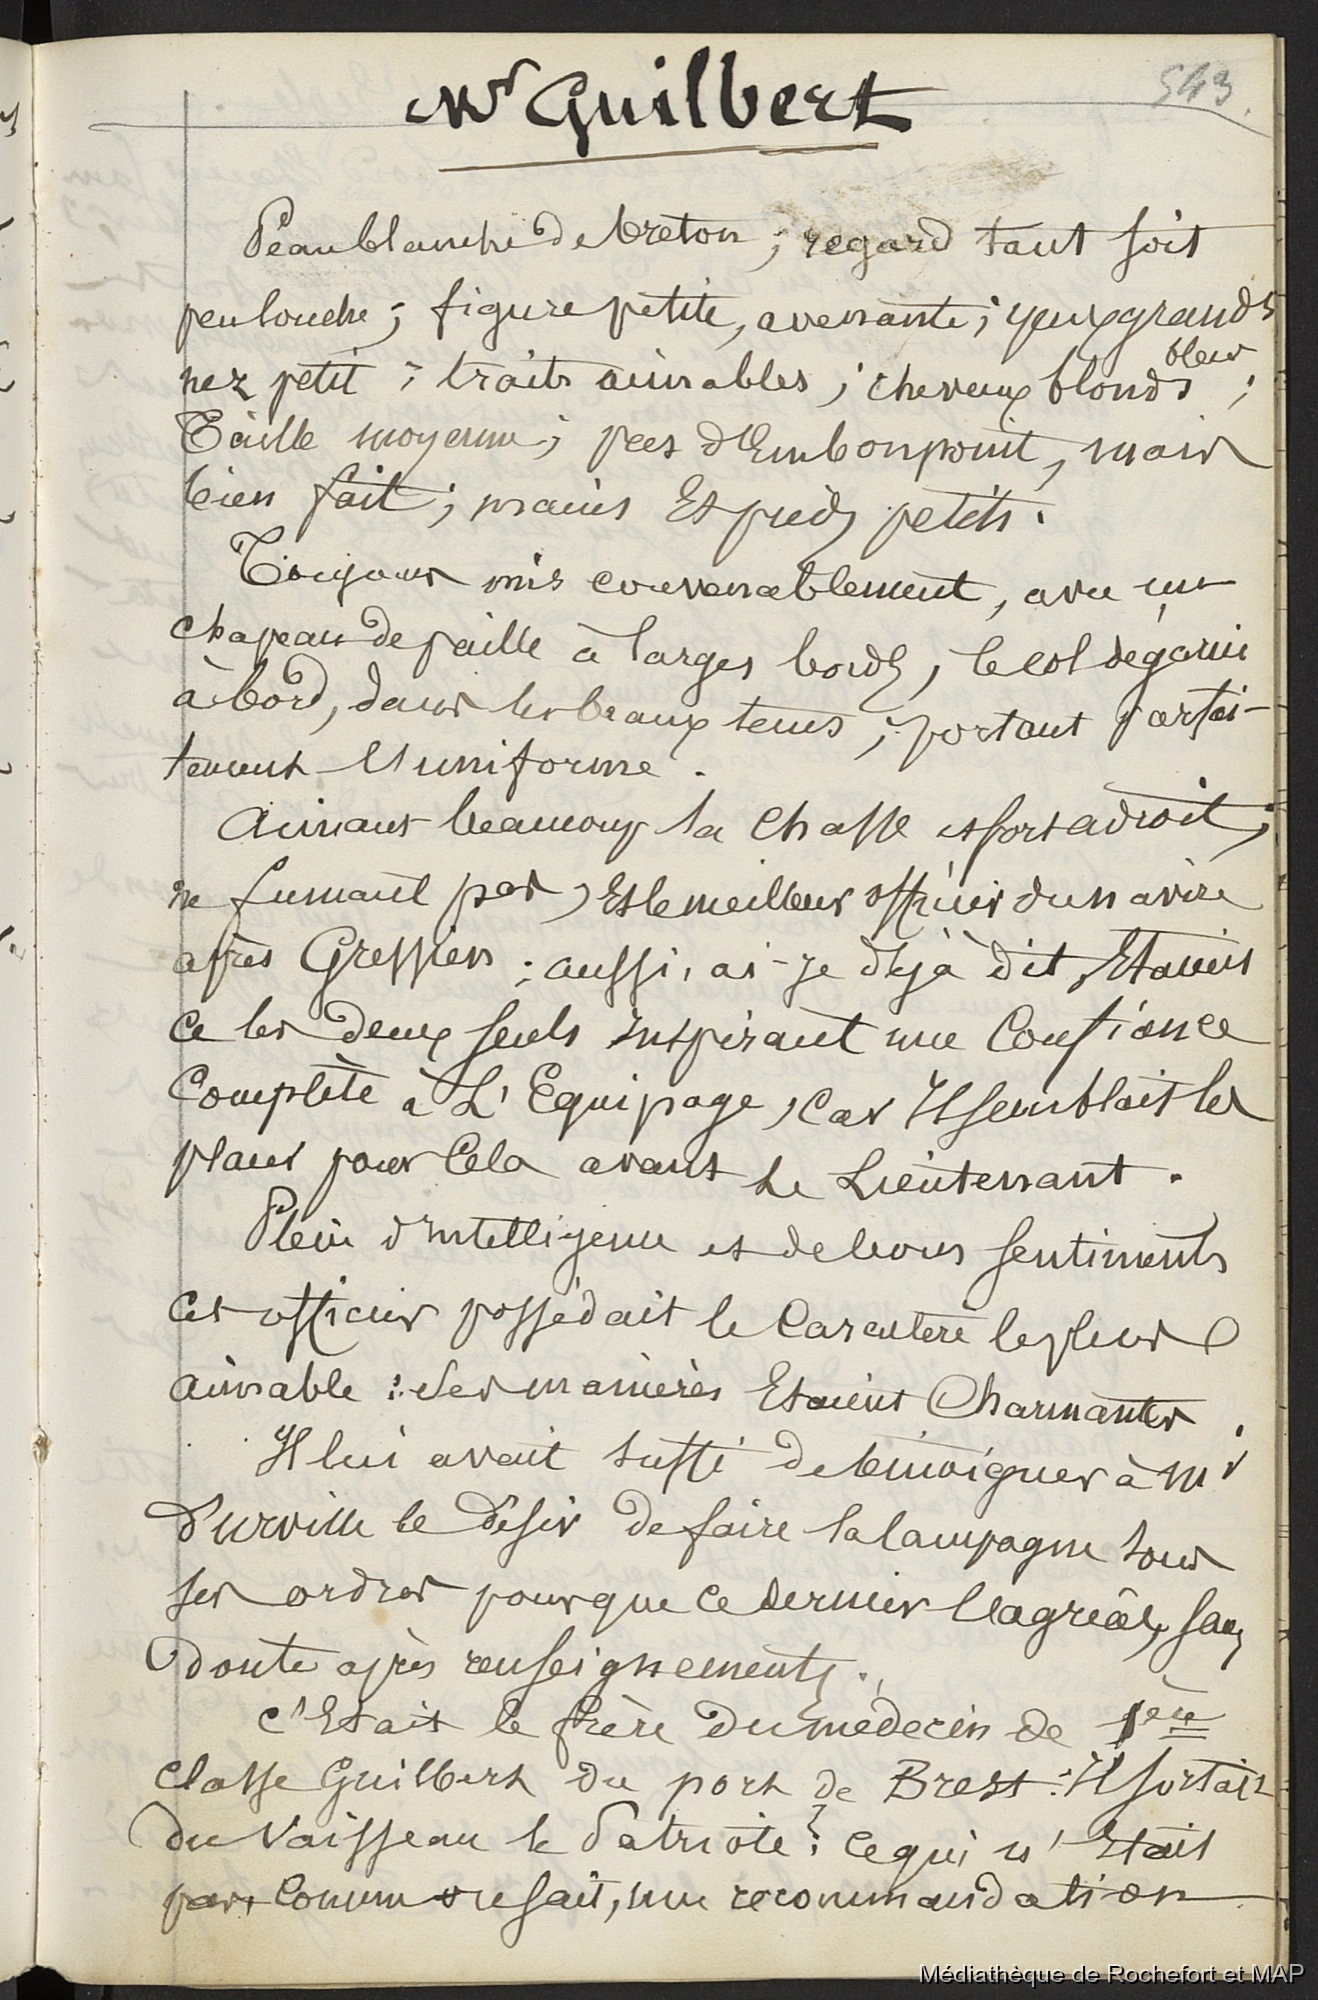 Mr Guilbert
543.
Peau blanche de breton ; regard tant soit
peu louche ; figure petite, avenante ; yeux grands
bleus
nez petit ; traits aimables ; cheveux blonds ;
Taille moyenne ; pas d'Embonpoint, mais
bien fait ; mains Et pieds petits.
Toujours mis convenablement, avec un
chapeau de paille à larges bords, le col dégarni
à bord, dans les beaux tems ; portant parfai-
tement l'uniforme.
Aimant beaucoup la chasse et fort adroit ;
ne fumant pas, Et le meilleur officier du navire
après Gressien ; aussi, ai-je déjà dit, Etaient
ce les deux seuls inspirant une Confiance
Complète à L'Equipage, Car Il semblait les
placer pour Cela avant Le Lieutenant.
Plein d'intelligence et de bons sentiments
Cet officier possédait le Caractère le plus
aimable : Ses manières Etaient Charmantes.
Il lui avait suffi de témoigner à Mr
d'urville le désir de faire la Campagne sous
ses ordres pour que Ce dernier l'agréât, sans
doute après renseignements.
C'Etait le frère du médecin de 1ère
Classe Guilbert du port de Brest : Il sortait
du Vaisseau le Patriote ; Ce qui n'Etait
pas, Comme on sait, une recommandation
Médiathèque de Rochefort et MAP